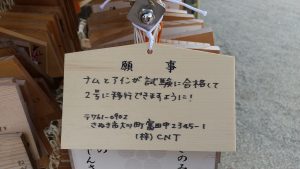 願事
ナムとアインが試験に合格して
2号に移行できますように!
〒761-0902
さぬき市大川町富田中2345-1
(株)CNT
のみ
の
しんさ